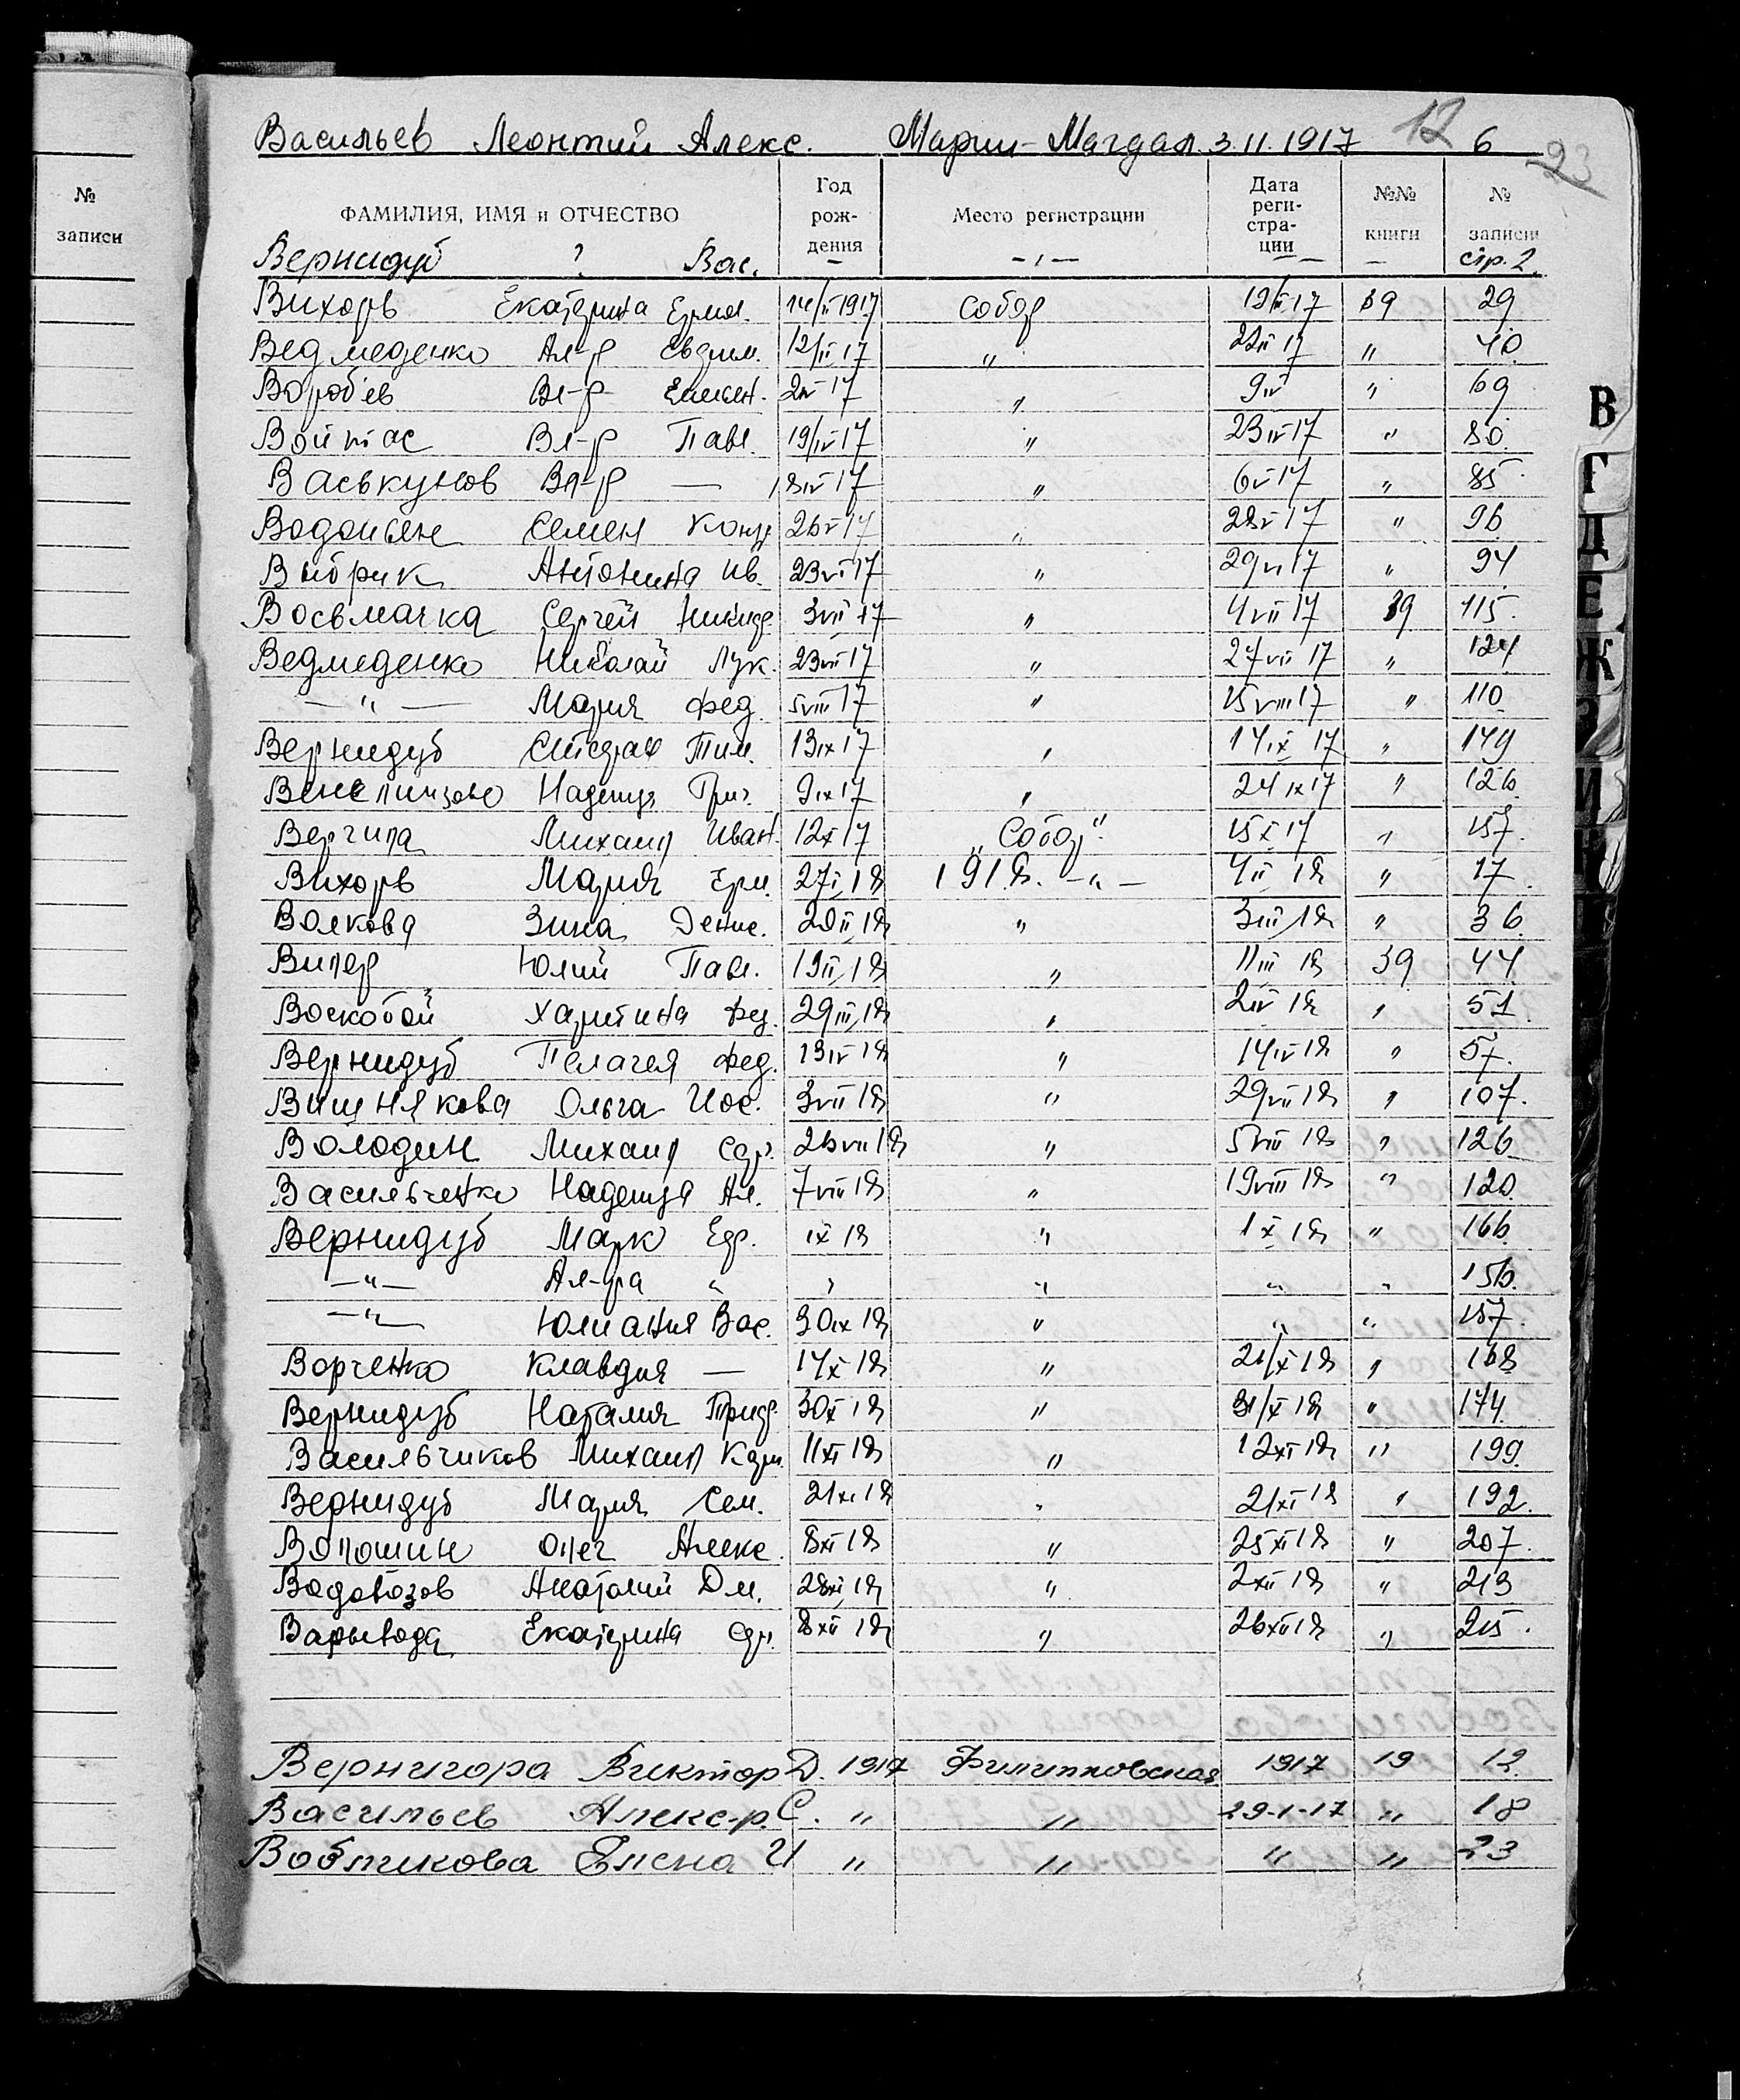 Васильев Леонтий Алекс. Марии-Магдал. 3.11.1917 12 6
23
№ записи
ФАМИЛИЯ, ИМЯ и ОТЧЕСТВО Год рождения Место регистрации Дата регистрации №№ книги № записи
Вернидуб ? Вас. — -"- — — стр. 2.
Вихорь Екатерина Ерм. 14/II 1917 Собор 19 17 39 29
Ведмеденко Ал-р Евдим. 12/II 17 " 22II 17 " 40
Вороб'ев Вл-р 2IV 17 " 9IV " 69
Войтас Вл-р Павл. 19/IV 17 " 23IV17 " 80.
Васькунов Вл-р — 18IV 17 " 6V 17 " 85
Водопьян Семен Конд 26V 17 " 28V 17 " 96
Выбрик Антонина Ив. 23VI 17 " 29VI 17 " 94
Восьмачка Сергей Никиф. 3VII 17 " 4VII 17 39 115.
Ведмеденко Николай Лук. 23VII 17 " 27VII 17 " 124
— " — Мария Фед. 5VIII 17 " 15VIII17 " 110
Вернидуб Стефан Тим. 13IX 17 " 14IX 17 " 149
Надежда Григ. 9IX 17 " 24IX17 " 126.
Верчила Михаил Иван. 12X 17 „Собор" 15X 17 " 157.
Вихорь Мария Ерм. 27I,18 1918. -"- 4II 18 " 17
Волкова Зина Денис. 20II,18 " 3III,18 " 36.
Вилер Юлий Павл. 19II,18 " 11III 18 39 44.
Воскобой Харитина Фед. 29III,18 " 2IV 18 " 51
Вернидуб Пелагея Фед. 13IV 18 " 14IV 18 " 57.
Вишнякова Ольга Иос. 3VII 18 " 29VII 18 " 107.
Володин Михаил Сер. 26VII 18 " 5VIII 18 " 126
Васильченко Надежда Ал. 7VIII 18 " 19VIII 18 " 120.
Вернидуб Марк Еф. IX 18 " 1X 18 " 166.
—"— Ал-ра " " " " " 156.
—"— Юлиания Вас. 30IX 18 " " " 157.
Ворченко Клавдия — 14X 18 " 21/X 18 " 168
Вернидуб Наталия Триф. 30X 18 " 31/X 18 " 174.
Васильчиков Михаил Карп. 11XI 18 " 12XI 18 " 199.
Вернидуб Мария Сем. 21XI 18 " 21XI 18 " 192.
Волошин Олег Алекс. 8XI 18 " 25XI 18 " 207.
Водовозов Анатолий Дм. 28XI,18 " 2XII 18 " 213
Варывода Екатерина Ер. 8XII 18 " 26XII18 " 215.
Вернигора Виктор Д. 1917 Филипповская 1917 19 12
Васильев Алекс-р. С. " " 29-1-17 " 18
Вобликова Елена И " " " " 23
В
Г
Д
Е
Ж
З
И